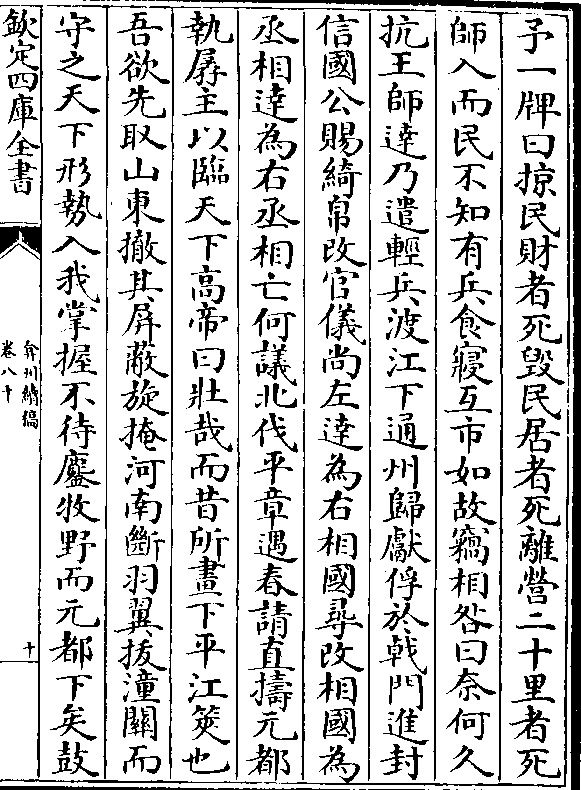 予一牌曰掠民財者死毀民居者死離營二十里者死
師入而民不知有兵食寢互市如故竊相咎曰奈何久
抗王師達乃遣輕兵渡江下通州歸獻俘於㦸門進封
信國公賜綺帛改官儀尚左達為右相國尋改相國為
丞相達為右丞相亡何議北伐平章遇春請直擣元都
執孱主以臨天下高帝曰壯哉而昔所畫下平江筴也
吾欲先取山東撤其屏蔽旋掩河南斷羽翼拔潼關而
守之天下形勢入我掌握不待鏖牧野而元都下矣鼓
欽定四庫全書
弇州續稿
卷八十
十